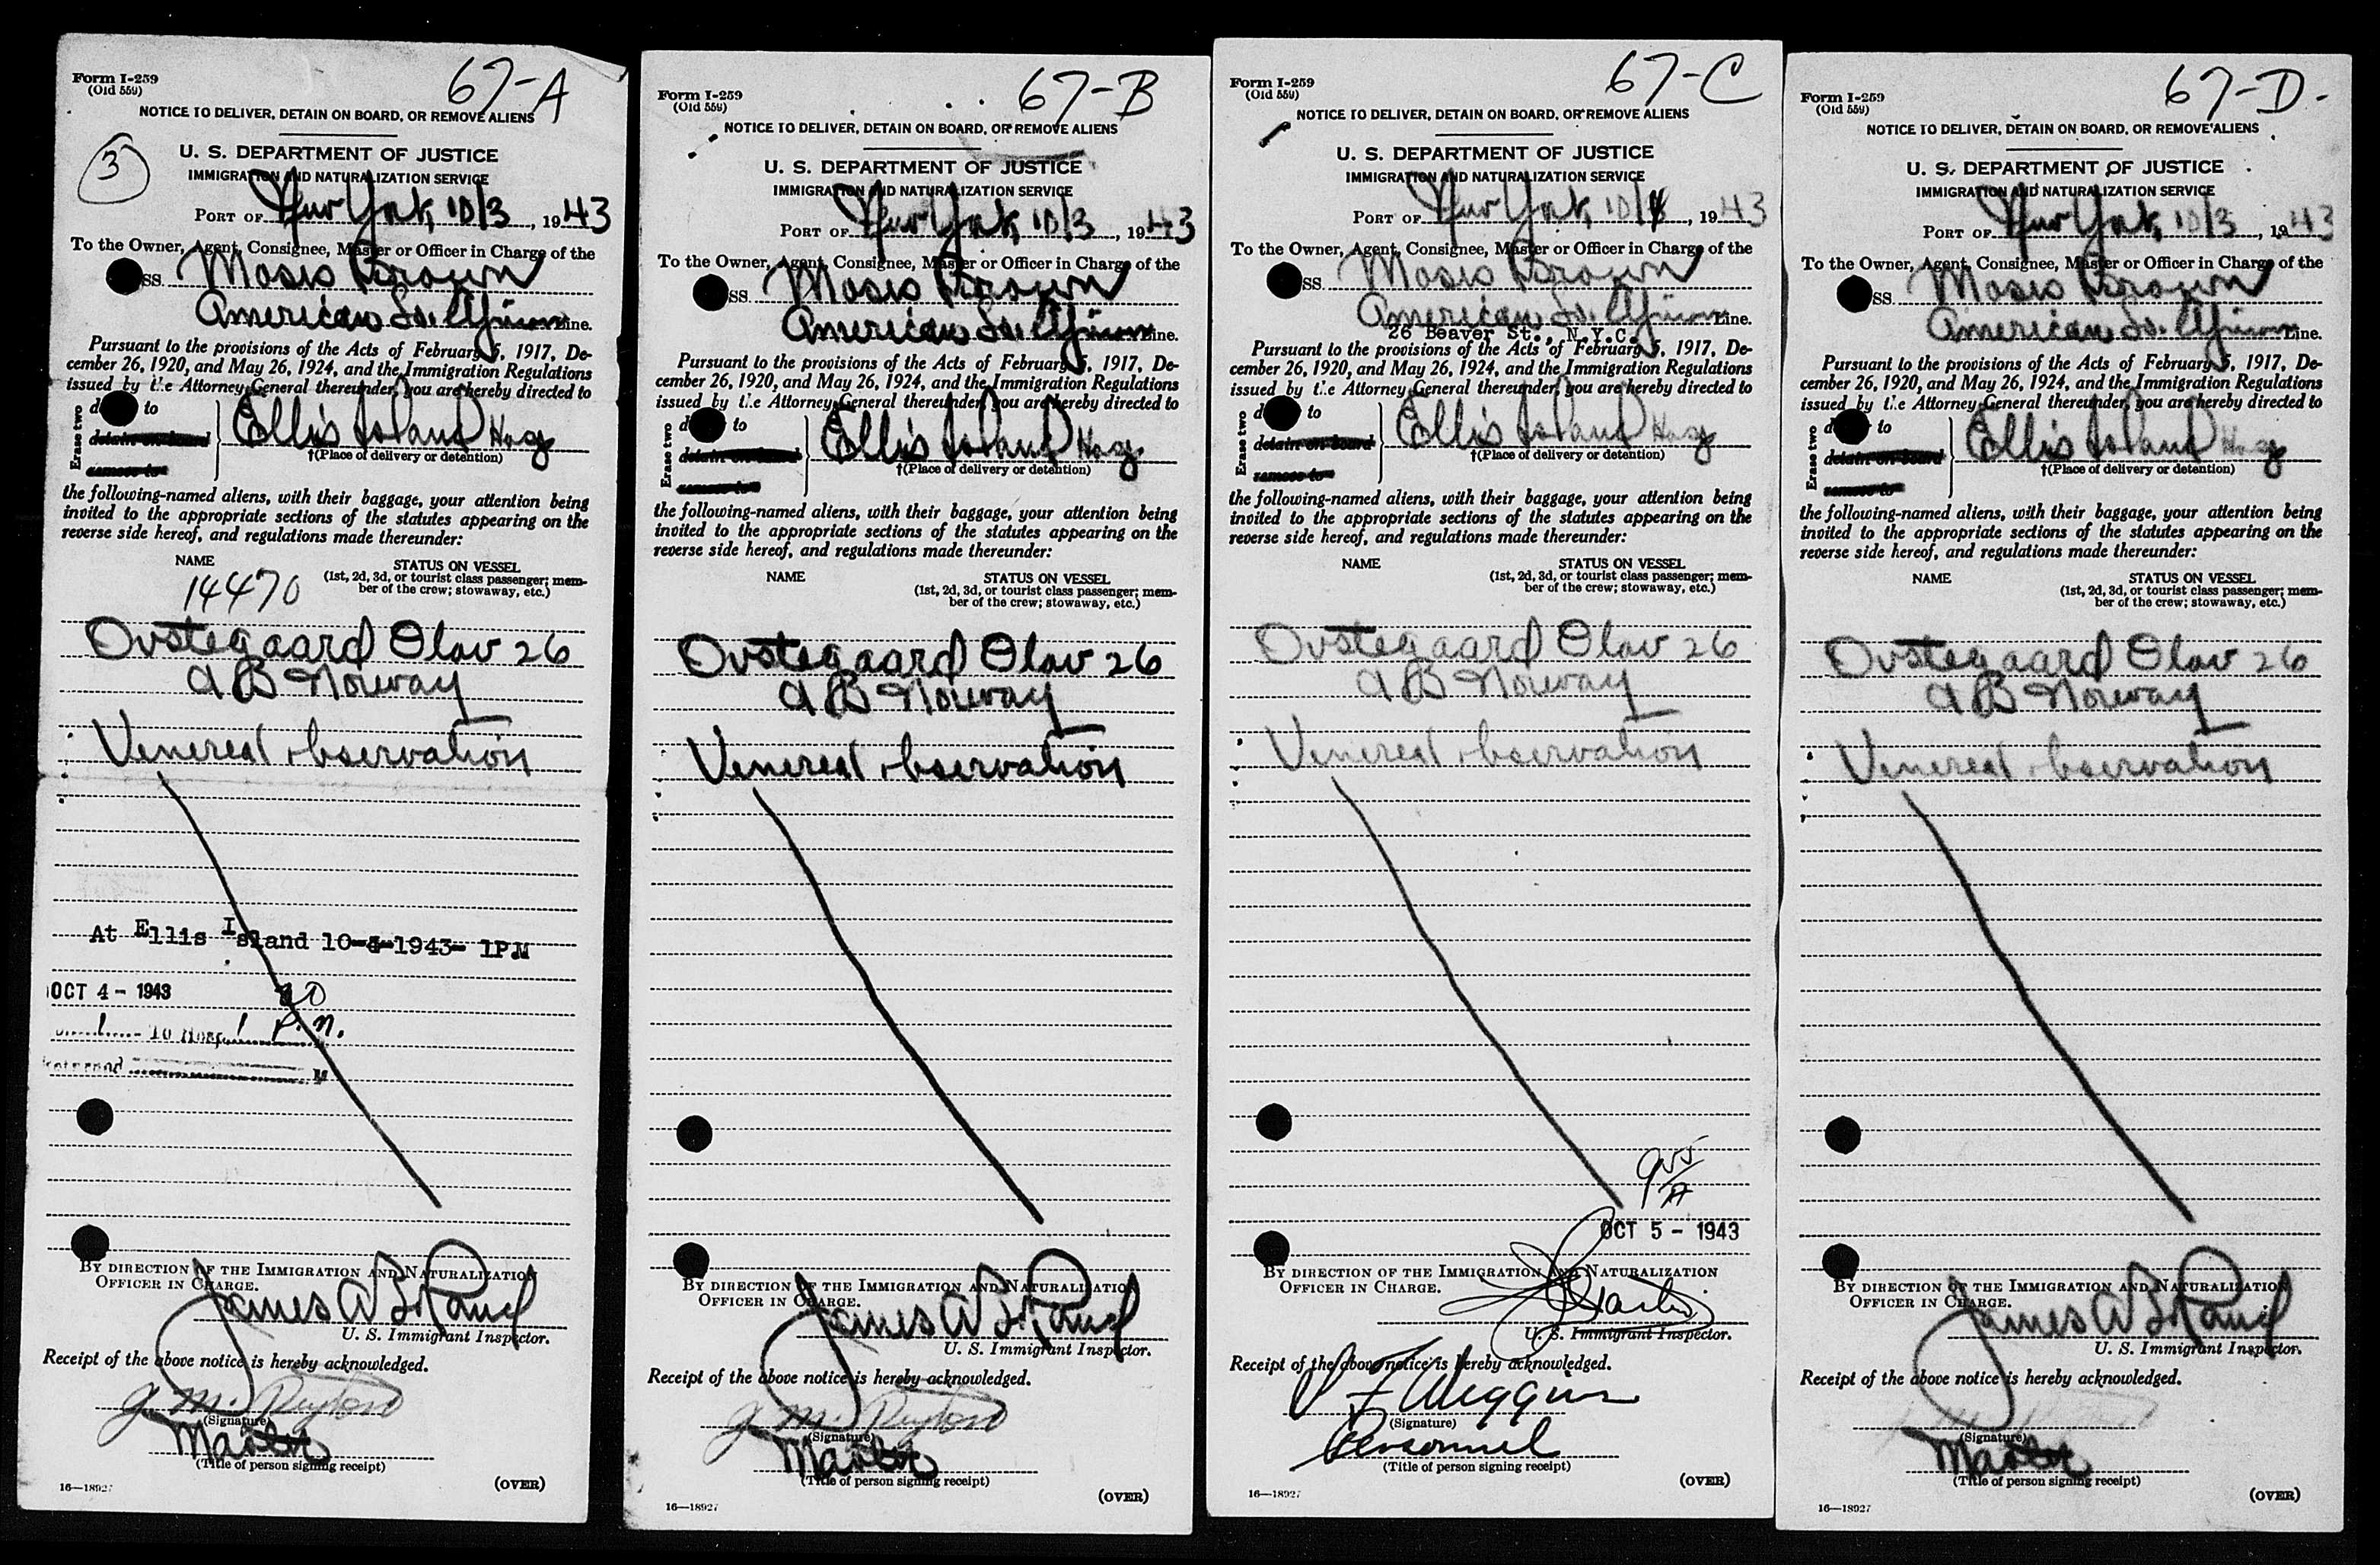 67-A
Form I-259
(Old 559)
NOTICE TO DELIVER, DETAIN ON BOARD, OR REMOVE ALIENS
3
U. S. DEPARTMENT OF JUSTICE
IMMIGRATION AND NATURALIZATION SERVICE
PORT OF New York, 10/3, 1943
To the Owner, Agent, Consignee, Master or Officer in Charge of the
SS. Moses Brown
American So. African Line.
Pursuant to the provisions of the Acts of February 5, 1917, De-
cember 26, 1920, and May 26, 1924, and the Immigration Regulations
issued by the Attorney General thereunder, you are hereby directed to
Erase two
d to
detain on board
remove to
Ellis Island Hosp
†(Place of delivery or detention)
the following-named aliens, with their baggage, your attention being
invited to the appropriate sections of the statutes appearing on the
reverse side hereof, and regulations made thereunder:
NAME
STATUS ON VESSEL
(1st, 2d, 3d, or tourist class passenger; mem-
ber of the crew; stowaway, etc.)
14470
Ovstegaard Olav 26
AB Norway
Venereal observation
At Ellis Island 10-4-1943- 1PM
OCT 4 - 1943
To Hosp. 1 P.M.
BY DIRECTION OF THE IMMIGRATION AND NATURALIZATION
OFFICER IN CHARGE.
James A
U. S. Immigrant Inspector.
Receipt of the above notice is hereby acknowledged.
J. M.
(Signature)
Master
(Title of person signing receipt)
(OVER)
16—18927
67-B
Form I-259
(Old 559)
NOTICE TO DELIVER, DETAIN ON BOARD, OR REMOVE ALIENS
U. S. DEPARTMENT OF JUSTICE
IMMIGRATION AND NATURALIZATION SERVICE
PORT OF New York, 10/3, 1943
To the Owner, Agent, Consignee, Master or Officer in Charge of the
SS. Moses Brown
American So. African Line.
Pursuant to the provisions of the Acts of February 5, 1917, De-
cember 26, 1920, and May 26, 1924, and the Immigration Regulations
issued by the Attorney General thereunder, you are hereby directed to
Erase two
d to
detain on board
remove to
Ellis Island Hosp
†(Place of delivery or detention)
the following-named aliens, with their baggage, your attention being
invited to the appropriate sections of the statutes appearing on the
reverse side hereof, and regulations made thereunder:
NAME
STATUS ON VESSEL
(1st, 2d, 3d, or tourist class passenger; mem-
ber of the crew; stowaway, etc.)
Ovstegaard Olav 26
AB Norway
Venereal observation
BY DIRECTION OF THE IMMIGRATION AND NATURALIZATION
OFFICER IN CHARGE.
James A
U. S. Immigrant Inspector.
Receipt of the above notice is hereby acknowledged.
J. M.
(Signature)
Master
(Title of person signing receipt)
(OVER)
16—18927
67-C
Form I-259
(Old 559)
NOTICE TO DELIVER, DETAIN ON BOARD, OR REMOVE ALIENS
U. S. DEPARTMENT OF JUSTICE
IMMIGRATION AND NATURALIZATION SERVICE
PORT OF New York, 10/4, 1943
To the Owner, Agent, Consignee, Master or Officer in Charge of the
SS. Moses Brown
American So. African Line.
26 Beaver St., N.Y.C.
Pursuant to the provisions of the Acts of February 5, 1917, De-
cember 26, 1920, and May 26, 1924, and the Immigration Regulations
issued by the Attorney General thereunder, you are hereby directed to
Erase two
d to
detain on board
remove to
Ellis Island Hosp
†(Place of delivery or detention)
the following-named aliens, with their baggage, your attention being
invited to the appropriate sections of the statutes appearing on the
reverse side hereof, and regulations made thereunder:
NAME
STATUS ON VESSEL
(1st, 2d, 3d, or tourist class passenger; mem-
ber of the crew; stowaway, etc.)
Ovstegaard Olav 26
AB Norway
Venereal observation
OCT 5 - 1943
BY DIRECTION OF THE IMMIGRATION AND NATURALIZATION
OFFICER IN CHARGE.
U. S. Immigrant Inspector.
Receipt of the above notice is hereby acknowledged.
(Signature)
Personnel
(Title of person signing receipt)
(OVER)
16—18927
67-D.
Form I-259
(Old 559)
NOTICE TO DELIVER, DETAIN ON BOARD, OR REMOVE ALIENS
U. S. DEPARTMENT OF JUSTICE
IMMIGRATION AND NATURALIZATION SERVICE
PORT OF New York, 10/3, 1943
To the Owner, Agent, Consignee, Master or Officer in Charge of the
SS. Moses Brown
American So. African Line.
Pursuant to the provisions of the Acts of February 5, 1917, De-
cember 26, 1920, and May 26, 1924, and the Immigration Regulations
issued by the Attorney General thereunder, you are hereby directed to
Erase two
d to
detain on board
remove to
Ellis Island Hosp
†(Place of delivery or detention)
the following-named aliens, with their baggage, your attention being
invited to the appropriate sections of the statutes appearing on the
reverse side hereof, and regulations made thereunder:
NAME
STATUS ON VESSEL
(1st, 2d, 3d, or tourist class passenger; mem-
ber of the crew; stowaway, etc.)
Ovstegaard Olav 26
AB Norway
Venereal observation
BY DIRECTION OF THE IMMIGRATION AND NATURALIZATION
OFFICER IN CHARGE.
James A
U. S. Immigrant Inspector.
Receipt of the above notice is hereby acknowledged.
(Signature)
Master
(Title of person signing receipt)
(OVER)
16—18927